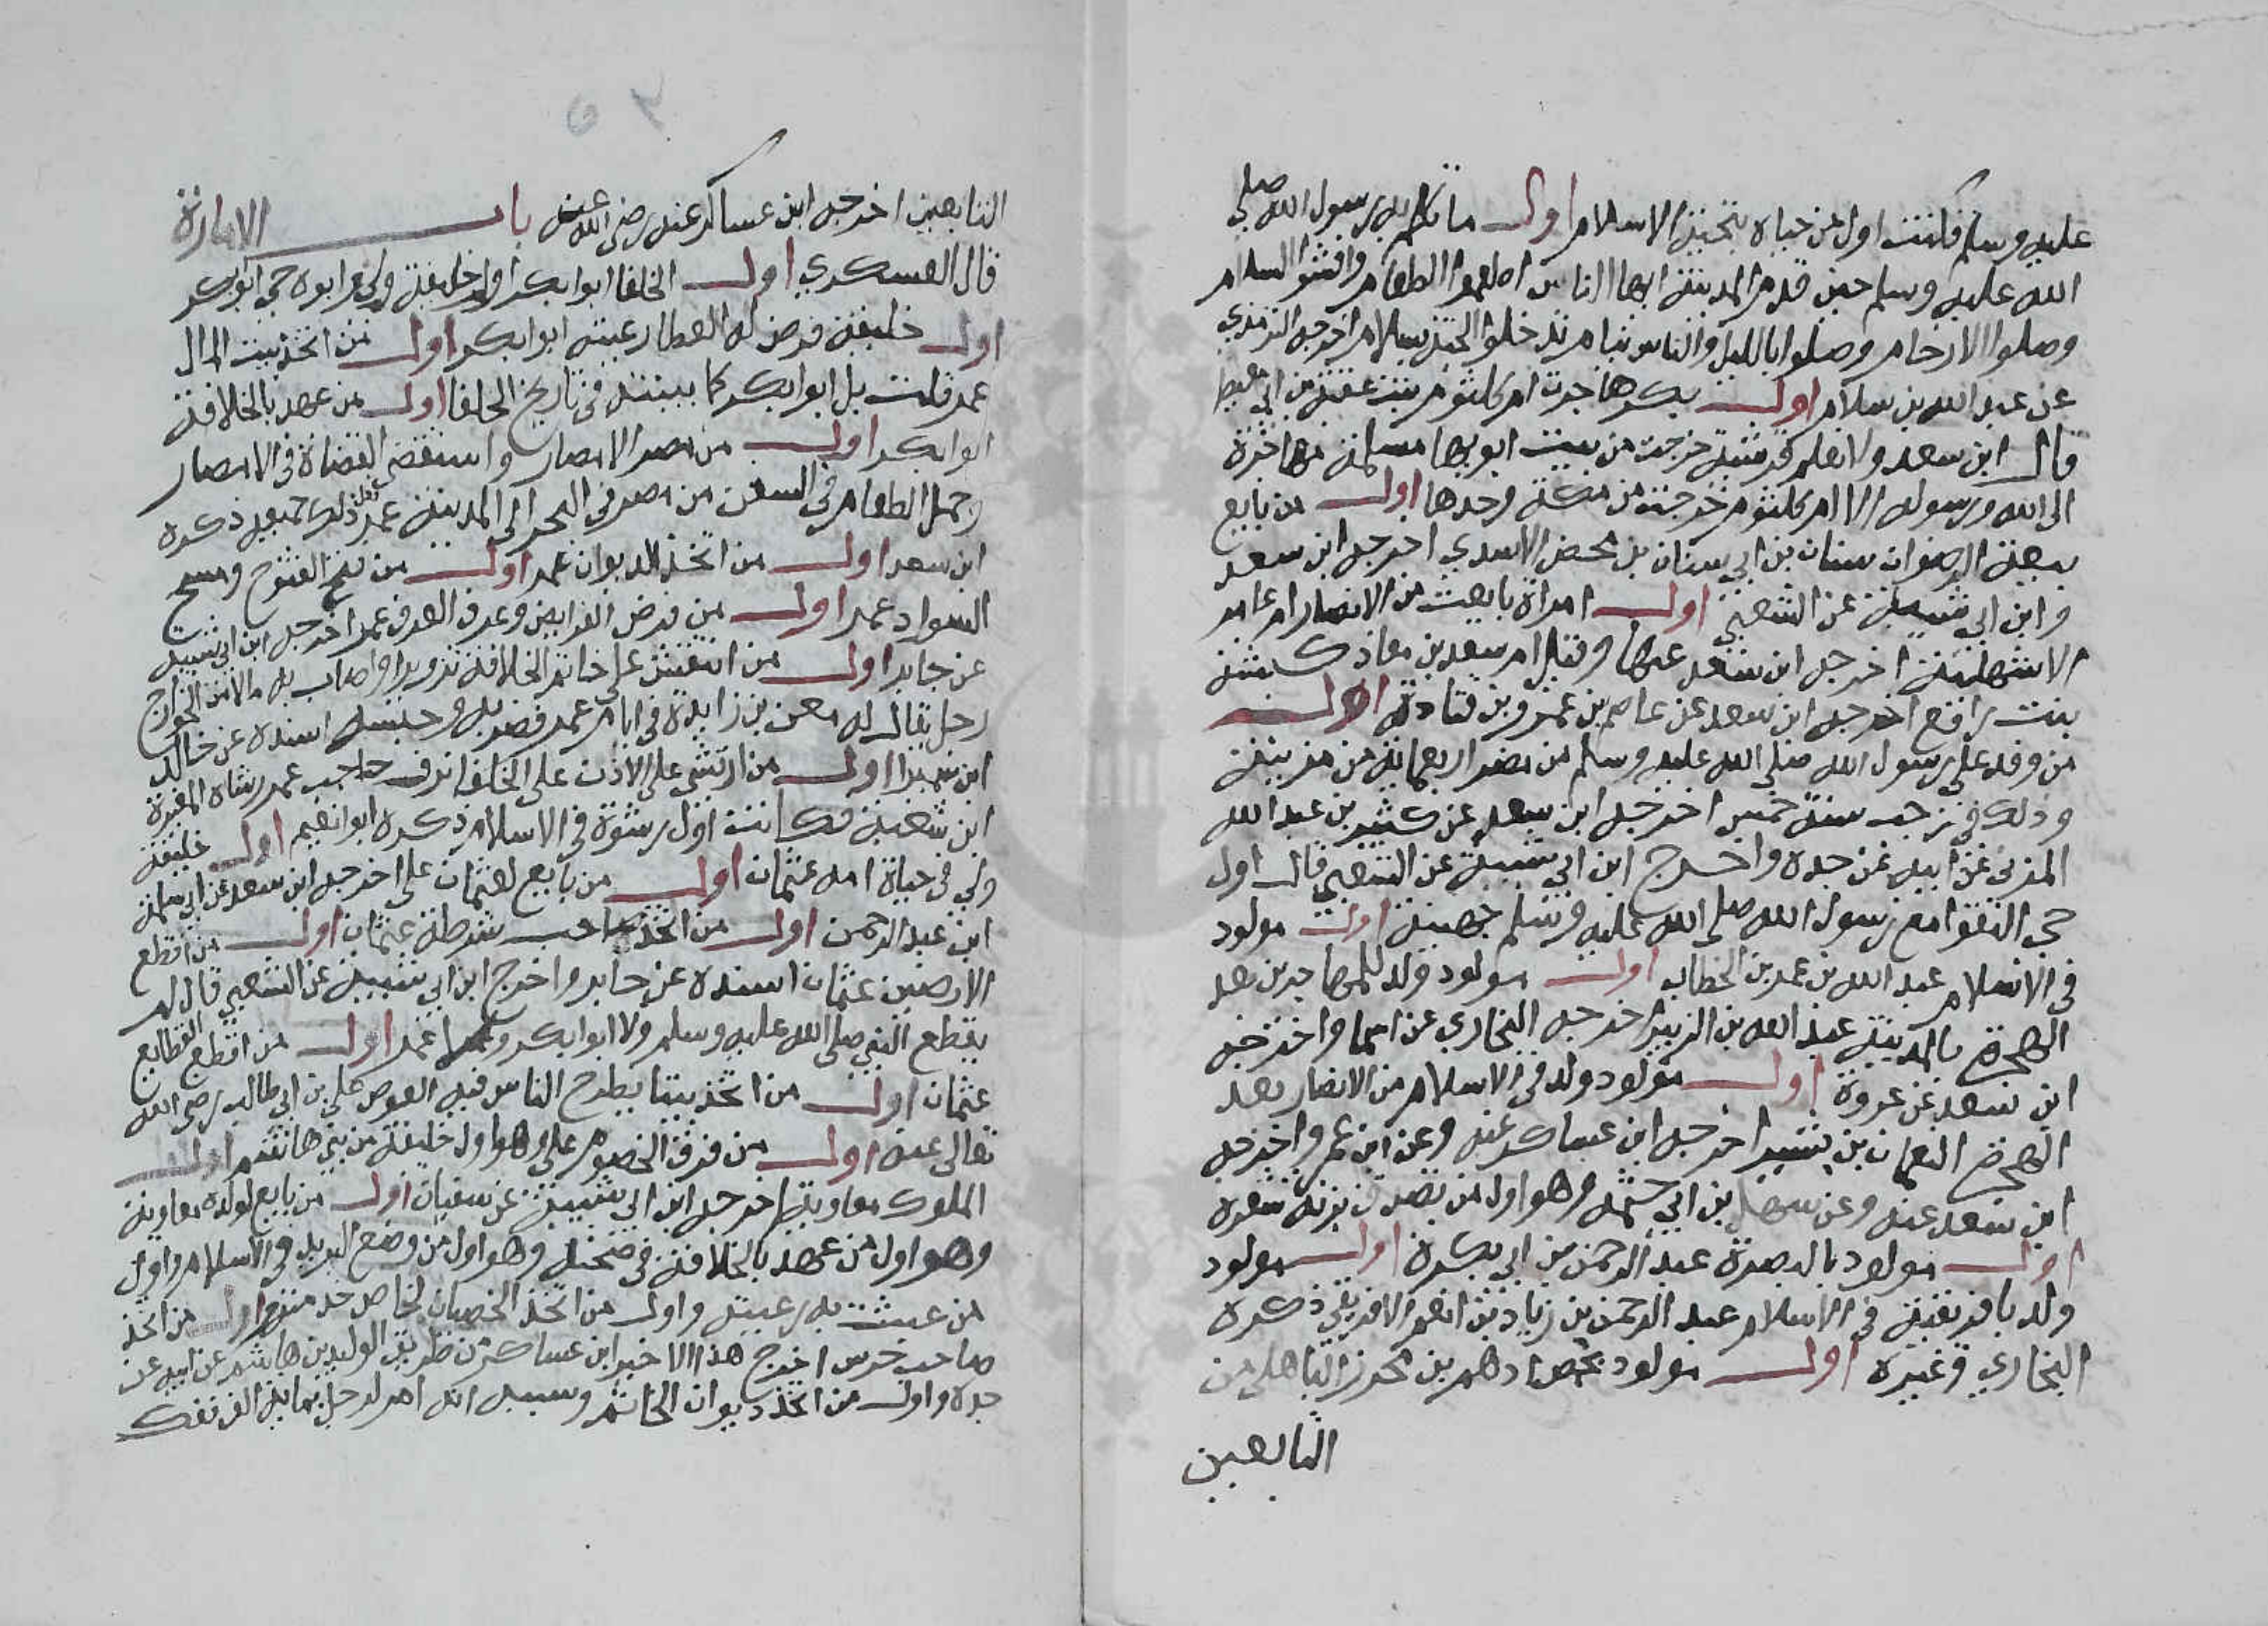 عليه وسلم فكنت اول من حياه بتحية الاسلام اول ما تكلم به رسول الله صلى
الله عليه وسلم حين قدم المدينة ايها الناس اطعموا الطعام وافشوا السلام
وصلوا الارحام وصلوا بالليل والناس نيام تدخلوا الجنة بسلام اخرجه الترمذي
عن عبد الله بن سلام اول بكر هاجرت ام كلثوم بنت عقبة بن ابي معيط
قال ابن سعد ولا نعلم قرشية خرجت من بيت ابويها مسلمة مهاجرة
الى الله ورسوله الا ام كلثوم خرجت من مكة وحدها اول من بايع
بيعة الرضوان سنان بن ابي سنان بن محصن الاسدي اخرجه ابن سعد
وابن ابي شيبة عن الشعبي اول امراة بايعت من الانصار ام عامر
الاشهلية اخرجه ابن سعد عنها وقيل ام سعد بن معاذ كبشة
بنت رافع اخرجه ابن سعد عن عاصم بن عمرو بن قتادة اول
من وفد على رسول الله صلى الله عليه وسلم من مضر اربعماية من مزينة
وذلك في رجب سنة خمس اخرجه ابن سعد عن كثير بن عبد الله
المزني عن ابيه عن جده واخرج ابن ابي شيبة عن الشعبي قال اول
حي التقوا مع رسول الله صلى الله عليه وسلم جهينة اول مولود
في الاسلام عبد الله بن عمر بن الخطاب اول مولود ولد للمهاجرين بعد
الهجرة بالمدينة عبد الله بن الزبير اخرجه البخاري عن اسما واخرجه
ابن سعد عن عروة اول مولود ولد في الاسلام من الانصار بعد
الهجرة النعمان بن بشير اخرجه ابن عساكر عنه وعن ابن عمر واخرجه
ابن سعد عنه وعن سهل بن ابي حثمه وهو اول من تصدق بزنة شعره
اول مولود بالبصرة عبد الرحمن بن ابي بكرة اول مولود
ولد بافريقية في الاسلام عبد الرحمن بن زياد بن انعم الافريقي ذكره
البخاري وغيره اول مولود بحمص ادهم بن محرز الباهلي من
التابعين
التابعين اخرجه ابن عساكر عنه رضي الله عنه باب الامارة
قال العسكري اول الخلفا ابوابكر اول خليفة ولي وابوه حي ابوبكر
اول خليفة فرض له العطا رعيته ابوابكر اول من اتخذ بيت المال
عمر قلت بل ابوابكر كما بينته في تاريخ الخلفا اول من عهد بالخلافة
ابوابكر اول من مصر الامصار واستقضى القضاة في الامصار
وحمل الطعام في السفن من مصر في البحر الى المدينة عمر ذلك جميعه ذكره
ابن سعد اول من اتخذ الديوان عمر اول من فتح الفتوح ومسح
السواد عمر اول من فرض الفرايض وعرف العرف عمر اخرجه ابن ابي شيبة
عن جابر اول من انتقش على خاتم الخلافة تزويرا واصاب به مالا من الخراج
رجل يقال له معن بن زايدة في ايام عمر فضربه وحبسه اسنده عن خالد
ابن سمير اول من ارتشى على الاذن على الخلفا يرفا حاجب عمر رشاه المغيرة
ابن شعبة فكانت اول رشوة في الاسلام ذكره ابوانعيم اول خليفة
ولي في حياة امه عثمان اول من بايع لعثمان علي اخرجه ابن سعد عن ابي سلمة
ابن عبد الرحمن اول من اتخذ صاحب شرطة عثمان اول من اقطع
الارضين عثمان اسنده عن جابر واخرج ابن ابي شيبة عن الشعبي قال لم
يقطع النبي صلى الله عليه وسلم ولا ابوابكر ولا عمر اول من اقطع القطايع
عثمان اول من اتخذ بيتا يطرح الناس فيه القصص علي بن ابي طالب رضي الله
تعالى عنه اول من فرق الخصوم علي وهو اول خليفة من بني هاشم اول
الملوك معاوية اخرجه ابن ابي شيبة عن سفيان اول من بايع لولده معاوية
وهو اول من عهد بالخلافة في صحته وهو اول من وضع البريد في الاسلام واول
من عبثت به رعيته واول من اتخذ الخصيان لخاص خدمته اول من اتخذ
صاحب حرس اخرج هذا الاخير ابن عساكر من طريق الوليد بن هاشم عن ابيه عن
جده واول من اتخذ ديوان الخاتم وسببه انه امر لرجل بماية الف ففك